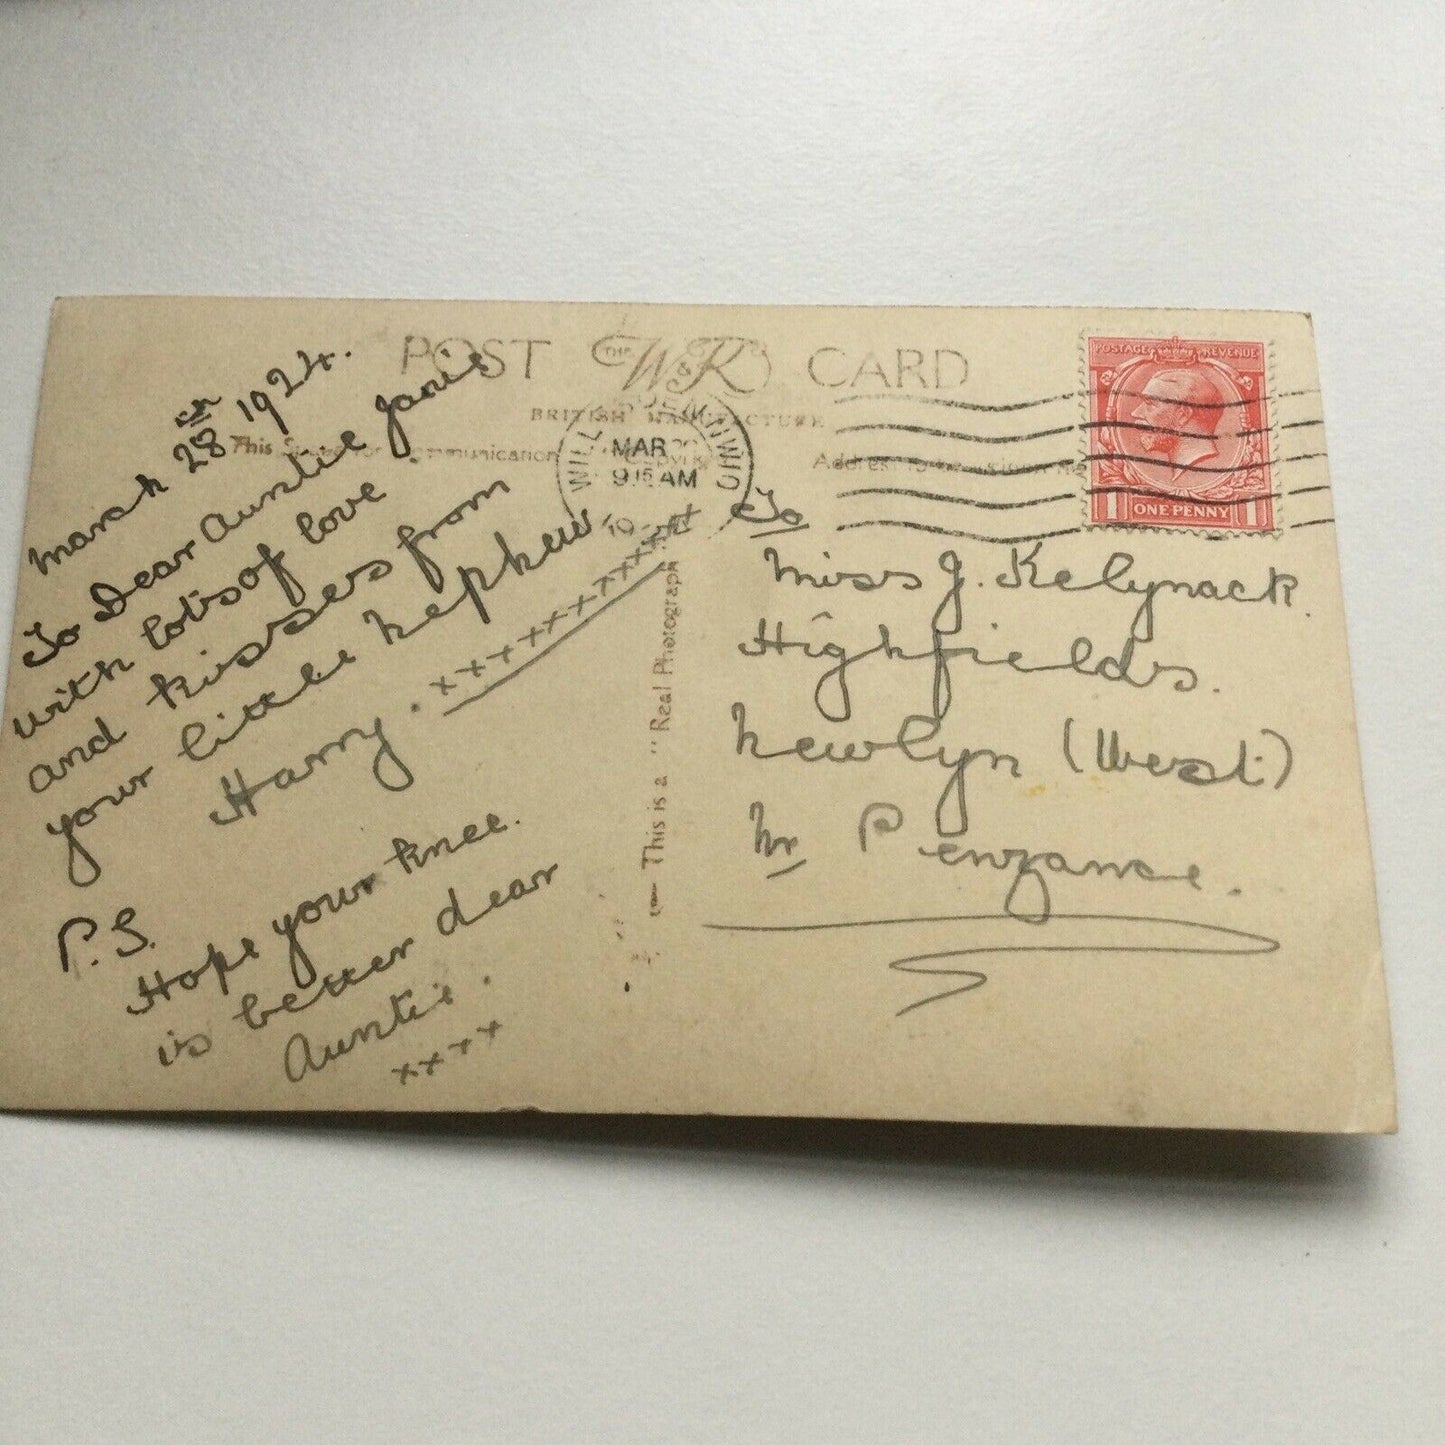 POST THE W & R CARD
BRITISH MANUFACTURE
This Communication
Address
MAR
9.15 AM
POSTAGE REVENUE
1 ONE PENNY 1
March 28th 1924.
To Dear Auntie Janie
with lots of love
and kisses from
your little nephew,
Harry. xxxxxxxxxxxxxx
P.S.
Hope your knee.
is better dear
Auntie.
xxxx
This is a "Real Photograph
To
Miss J. Kelynack.
Highfields.
Newlyn (West)
Nr Penzance.